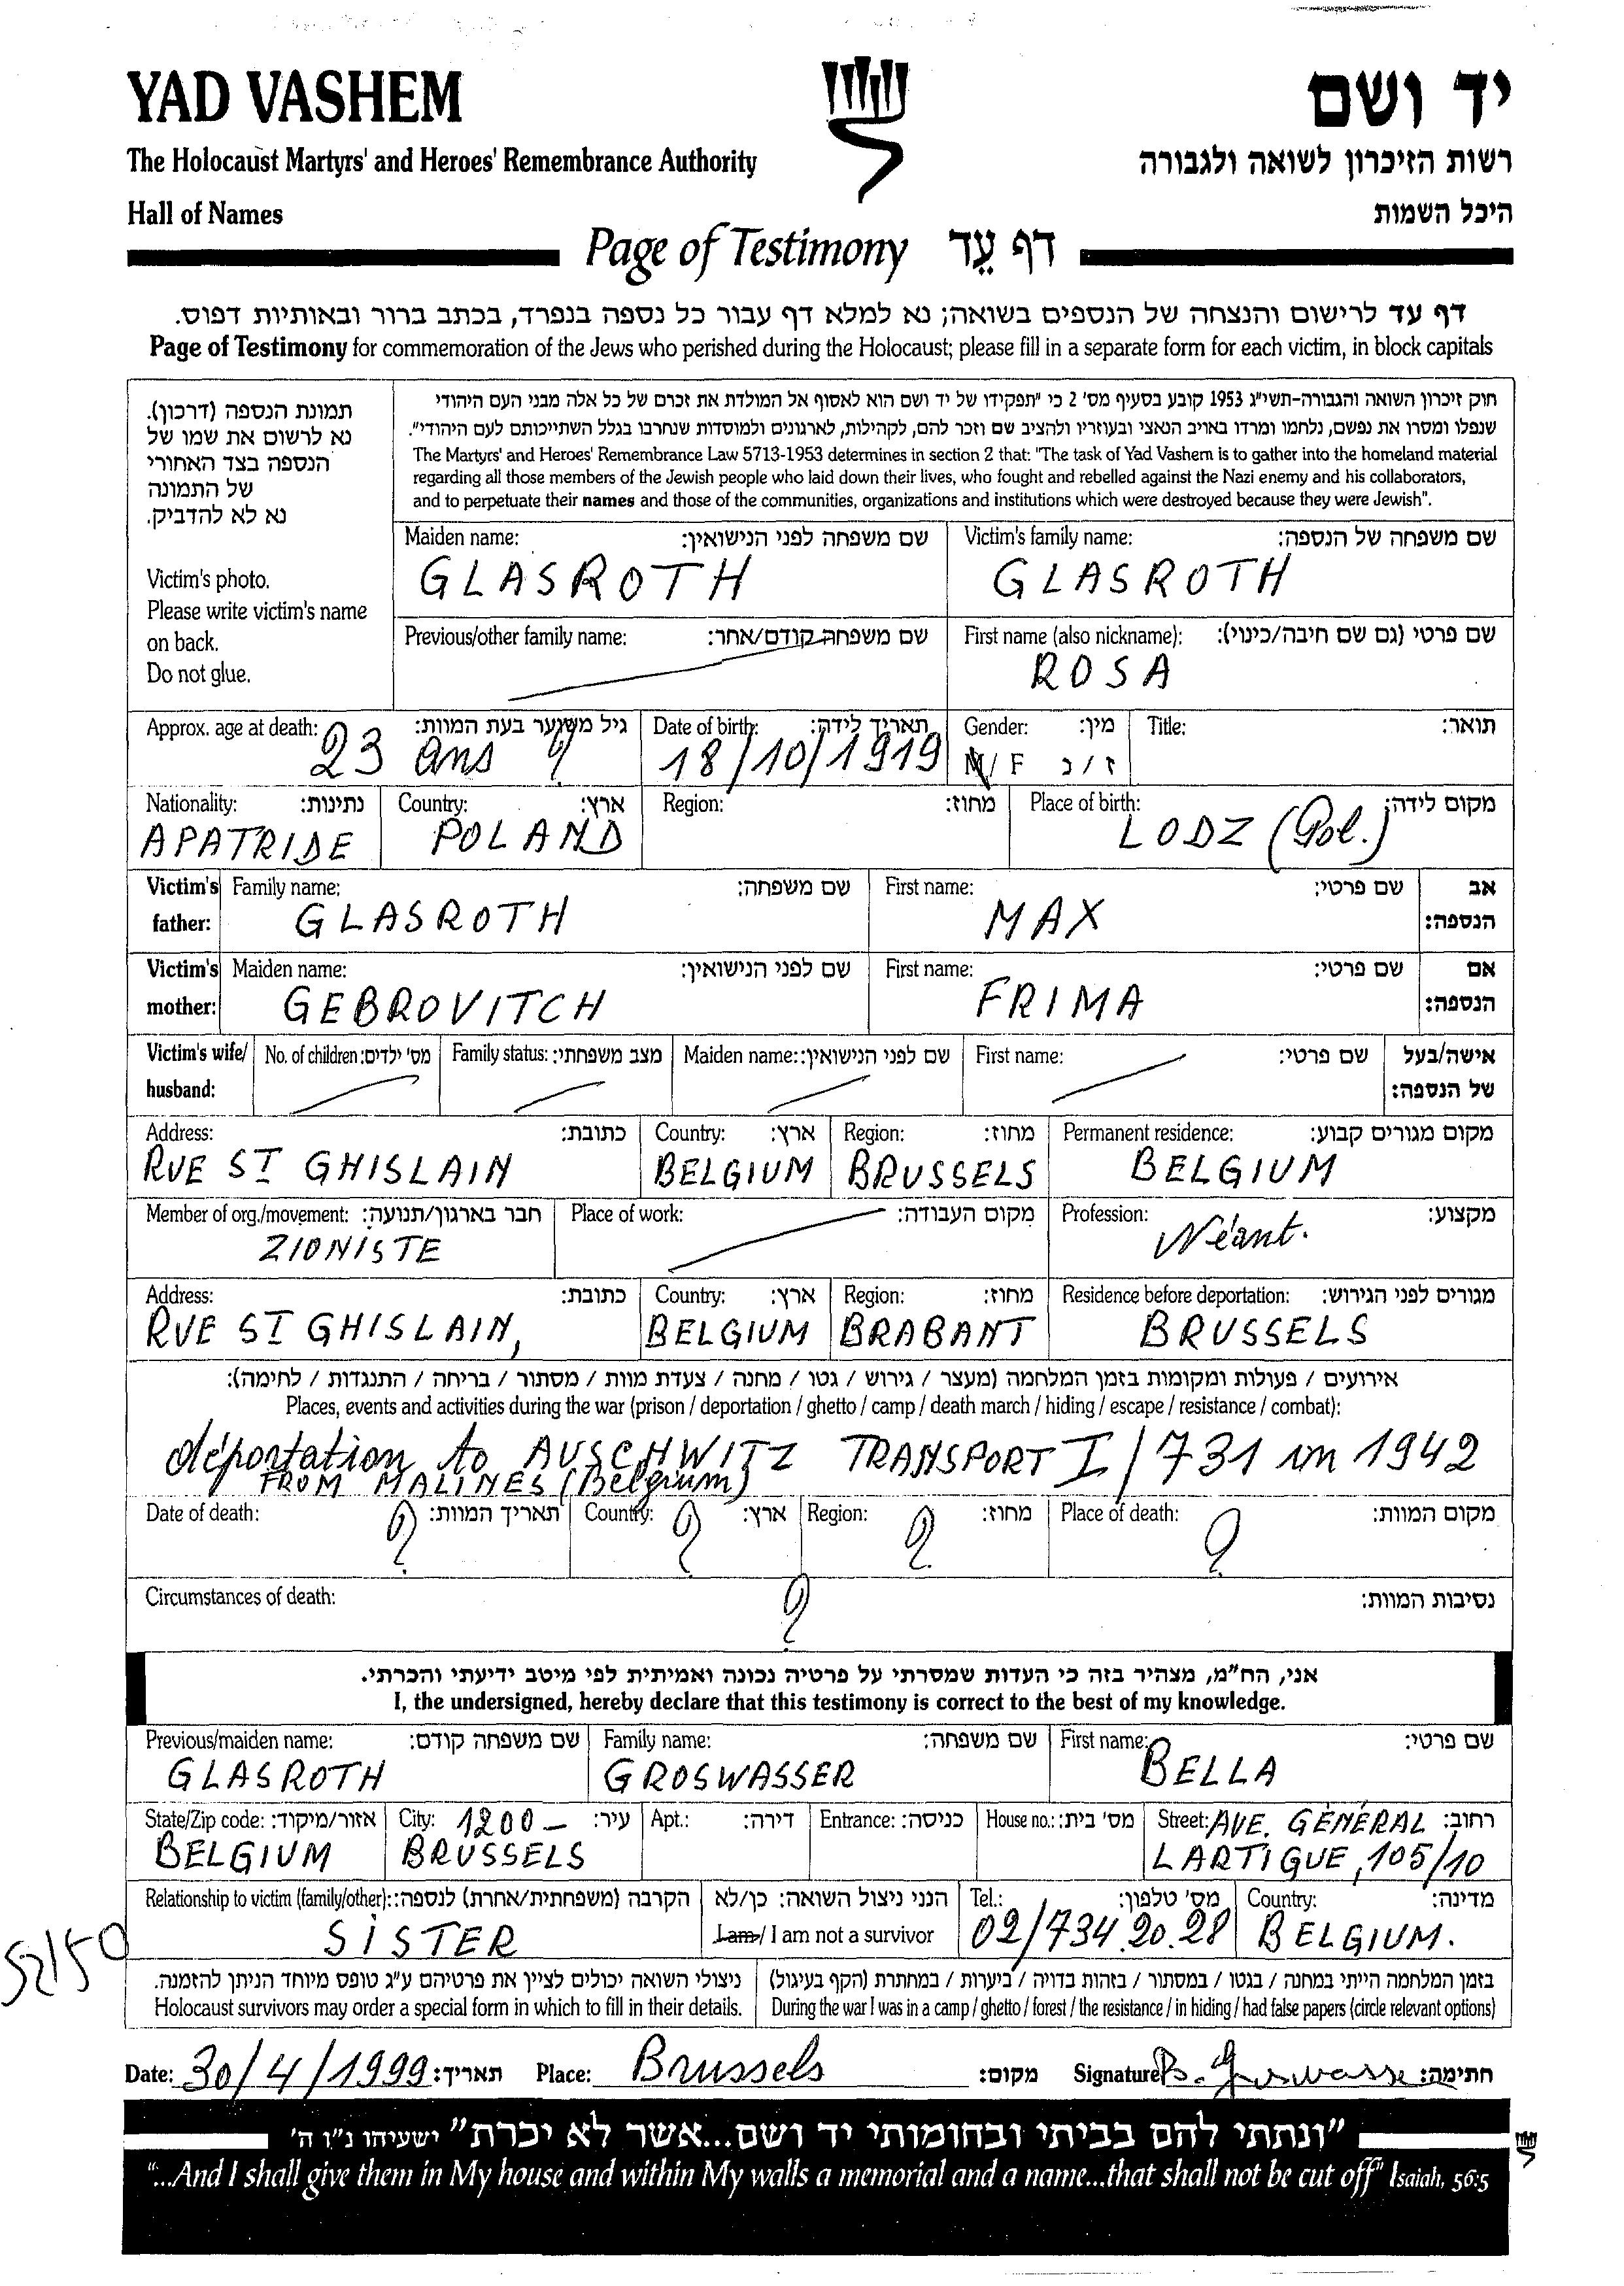 YAD VASHEM
יד ושם
The Holocaust Martyrs' and Heroes' Remembrance Authority
רשות הזיכרון לשואה ולגבורה
Hall of Names
היכל השמות
Page of Testimony דף עֵד
דף עד לרישום והנצחה של הנספים בשואה; נא למלא דף עבור כל נספה בנפרד, בכתב ברור ובאותיות דפוס.
Page of Testimony for commemoration of the Jews who perished during the Holocaust; please fill in a separate form for each victim, in block capitals
תמונת הנספה (דרכון).
נא לרשום את שמו של
הנספה בצד האחורי
של התמונה
נא לא להדביק.
Victim's photo.
Please write victim's name
on back.
Do not glue.
חוק זיכרון השואה והגבורה-תשי"ג 1953 קובע בסעיף מס' 2 כי "תפקידו של יד ושם הוא לאסוף אל המולדת את זכרם של כל אלה מבני העם היהודי
שנפלו ומסרו את נפשם, נלחמו ומרדו באויב הנאצי ובעוזריו ולהציב שם וזכר להם, לקהילות, לארגונים ולמוסדות שנחרבו בגלל השתייכותם לעם היהודי".
The Martyrs' and Heroes' Remembrance Law 5713-1953 determines in section 2 that: "The task of Yad Vashem is to gather into the homeland material
regarding all those members of the Jewish people who laid down their lives, who fought and rebelled against the Nazi enemy and his collaborators,
and to perpetuate their names and those of the communities, organizations and institutions which were destroyed because they were Jewish".
Maiden name: שם משפחה לפני הנישואין: Victim's family name: שם משפחה של הנספה:
GLASROTH GLASROTH
Previous/other family name: שם משפחה קודם/אחר: First name (also nickname): שם פרטי (גם שם חיבה/כינוי):
ROSA
Approx. age at death: גיל משוער בעת המוות: Date of birth: תאריך לידה: Gender: מין: Title: תואר:
23 ans ? 18/10/1919 M/F ז/נ
Nationality: נתינות: Country: ארץ: Region: מחוז: Place of birth: מקום לידה:
APATRIDE POLAND LODZ (Pol.)
Victim's father: Family name: שם משפחה: First name: שם פרטי: אב הנספה:
GLASROTH MAX
Victim's mother: Maiden name: שם לפני הנישואין: First name: שם פרטי: אם הנספה:
GEBROVITCH FRIMA
Victim's wife/ No. of children: מס' ילדים: Family status: מצב משפחתי: Maiden name: שם לפני הנישואין: First name: שם פרטי: אישה/בעל
husband: של הנספה:
Address: כתובת: Country: ארץ: Region: מחוז: Permanent residence: מקום מגורים קבוע:
RUE ST GHISLAIN BELGIUM BRUSSELS BELGIUM
Member of org./movement: חבר בארגון/תנועה: Place of work: מקום העבודה: Profession: מקצוע:
ZIONISTE Néant.
Address: כתובת: Country: ארץ: Region: מחוז: Residence before deportation: מגורים לפני הגירוש:
RUE ST GHISLAIN, BELGIUM BRABANT BRUSSELS
אירועים / פעולות ומקומות בזמן המלחמה (מעצר / גירוש / גטו / מחנה / צעדת מוות / מסתור / בריחה / התנגדות / לחימה):
Places, events and activities during the war (prison / deportation / ghetto / camp / death march / hiding / escape / resistance / combat):
déportation to AUSCHWITZ TRANSPORT I/731 in 1942
FROM MALINES (Belgium)
Date of death: ? תאריך המוות: Country: ? ארץ: Region: ? מחוז: Place of death: ? מקום המוות:
Circumstances of death: ? נסיבות המוות:
אני, הח"מ, מצהיר בזה כי העדות שמסרתי על פרטיה נכונה ואמיתית לפי מיטב ידיעתי והכרתי.
I, the undersigned, hereby declare that this testimony is correct to the best of my knowledge.
Previous/maiden name: שם משפחה קודם: Family name: שם משפחה: First name: שם פרטי:
GLASROTH GROSWASSER BELLA
State/Zip code: אזור/מיקוד: City: 1200 - עיר: Apt.: דירה: Entrance: כניסה: House no.: מס' בית: Street: AVE. GÉNÉRAL רחוב:
BELGIUM BRUSSELS LARTIGUE, 105/10
Relationship to victim (family/other): הקרבה (משפחתית/אחרת) לנספה: הנני ניצול השואה: כן/לא Tel.: מס' טלפון: Country: מדינה:
SISTER I am / I am not a survivor 02/734.20.28 BELGIUM.
52/50
ניצולי השואה יכולים לציין את פרטיהם ע"ג טופס מיוחד הניתן להזמנה. בזמן המלחמה הייתי במחנה / בגטו / במסתור / בזהות בדויה / ביערות / במחתרת (הקף בעיגול)
Holocaust survivors may order a special form in which to fill in their details. During the war I was in a camp / ghetto / forest / the resistance / in hiding / had false papers (circle relevant options)
Date: 30/4/1999 תאריך: Place: Brussels מקום: Signature B. Groswasser חתימה:
"ונתתי להם בביתי ובחומותי יד ושם...אשר לא יכרת" ישעיהו נ"ו ה'
"...And I shall give them in My house and within My walls a memorial and a name...that shall not be cut off" Isaiah, 56:5